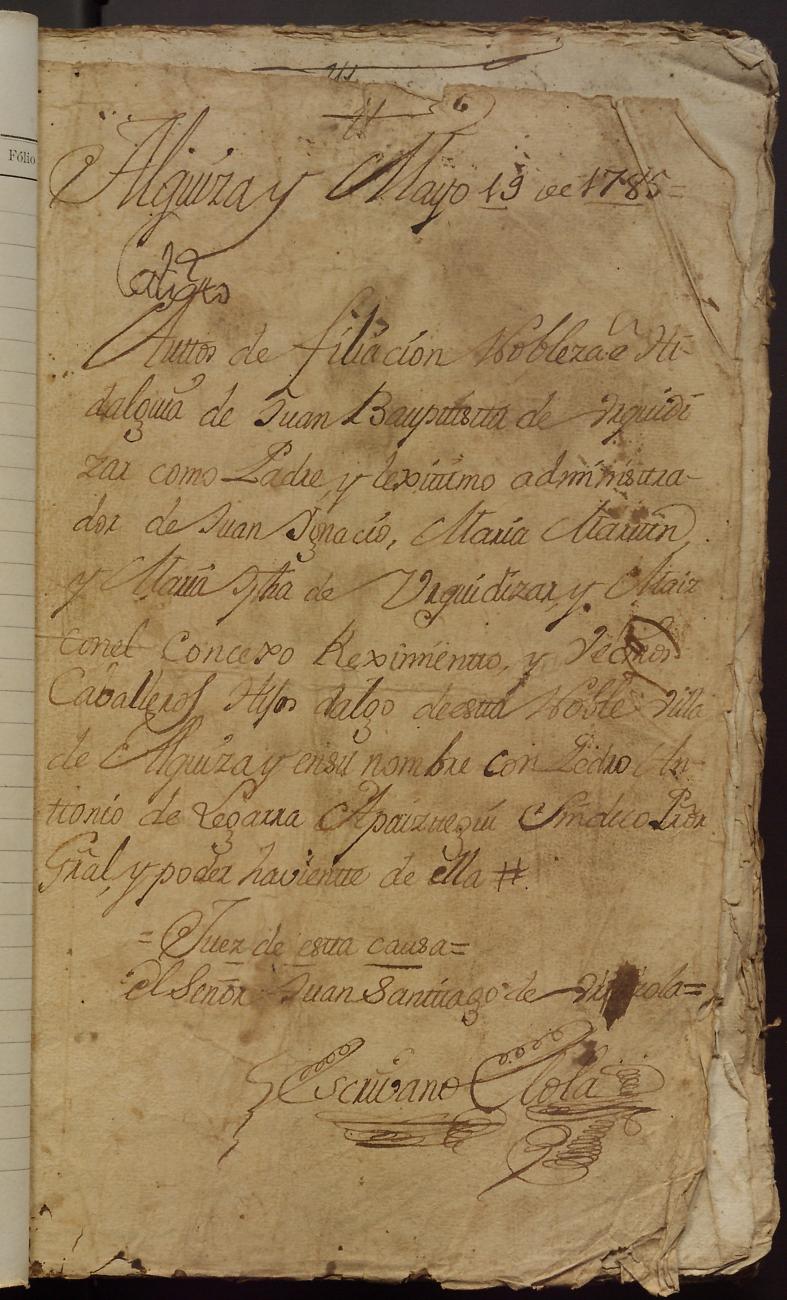 Fólio
Alquiza y Mayo 19 de 1785=
Autos de filiación Nobleza e Hi-
dalguia de Juan Bauptista de Vrquidi
zar como Padre y lexitimo administra-
dor de Juan Ignacio, Maria Martin
y Maria Jpha de Vrquidizar, y Maiz
conel Concexo Reximiento, y Vecinos
Caballeros Hijos dalgo deesta Noble Villa
de Alquiza y ensu nombre con Pedro An-
ttonio de Legarra Apaizttegui Sindico Pror
Gral, y poder haviente de ella #.
=Juez de esta causa=
el Señor Juan Santiago de
Escribano Elola